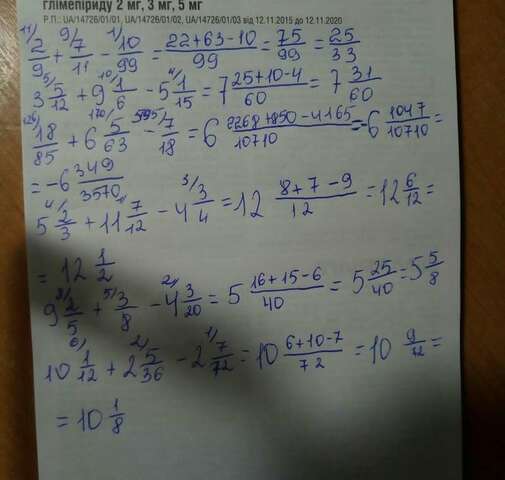 глімепіриду 2 мг, 3 мг, 5 мг
Р.П.: UA/14726/01/01, UA/14726/01/02, UA/14726/01/03 від 12.11.2015 до 12.11.2020
11/ 2/9 + 9/ 7/11 - 1/ 10/99 = (22+63-10)/99 = 75/99 = 25/33
3 5/ 5/12 + 9 10/ 1/6 - 5 4/ 1/15 = 7 (25+10-4)/60 = 7 31/60
126/ 18/85 + 6 170/ 5/63 - 595/ 7/18 = 6 (2268+850-4165)/10710 = -6 1047/10710 =
= -6 349/3570
5 4/ 2/3 + 11 7/12 - 4 3/ 3/4 = 12 (8+7-9)/12 = 12 6/12 =
= 12 1/2
9 8/ 2/5 + 5/ 3/8 - 4 2/ 3/20 = 5 (16+15-6)/40 = 5 25/40 = 5 5/8
10 6/ 1/12 + 2 2/ 5/36 - 2 1/ 7/72 = 10 (6+10-7)/72 = 10 9/72 =
= 10 1/8